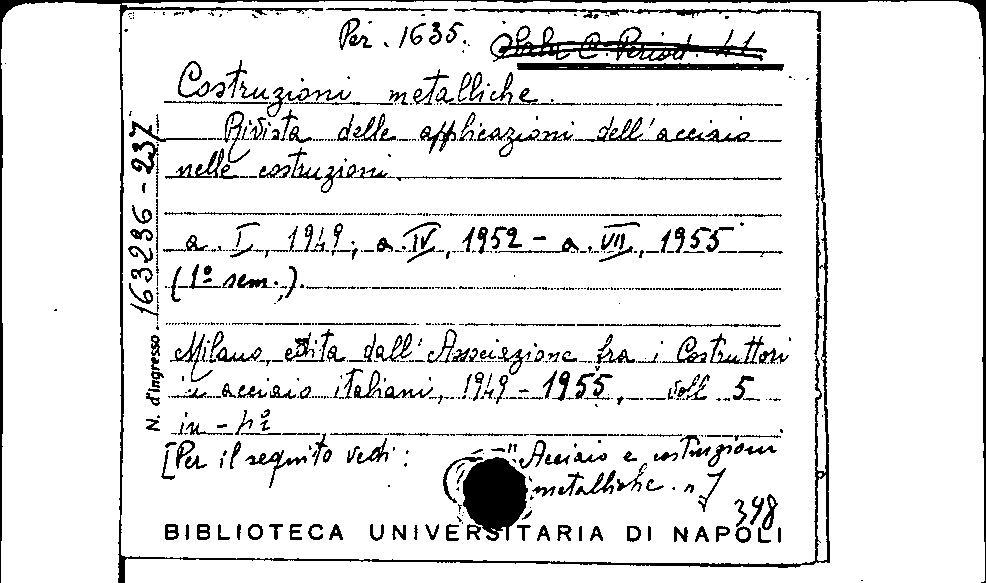 Per. 1635. Sala C Period. 41
Costruzioni metalliche.
Rivista delle applicazioni dell'acciaio
nelle costruzioni.
a. I, 1949; a. IV, 1952 - a. VII, 1955
(1º sem.).
Milano, edita dall'Associazione fra i Costruttori
in acciaio italiani, 1949 - 1955, voll. 5
in - 4º
[Per il seguito vedi: "Acciaio e costruzioni
metalliche."]
398
BIBLIOTECA UNIVERSITARIA DI NAPOLI
N. d'ingresso 163236 - 237